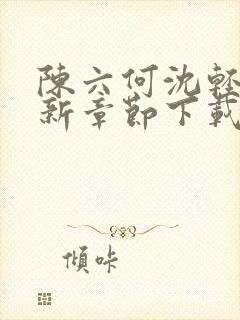 陳六何沈輕
新章節下載
傾咔